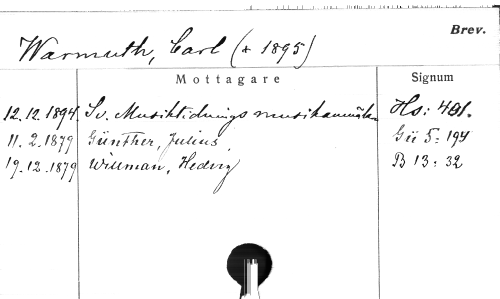 Brev.
Warmuth, Carl (+ 1895)
Mottagare Signum
12.12.1894. Sv. Musiktidnings musikanmälan Hs: 401.
11. 2. 1879 Günther, Julius, Gü 5: 194
19.12.1879 Willman, Hedvig B 13: 32